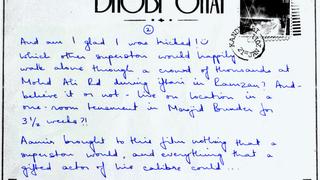 DHOBI GHAT
②
And am I glad I was kicked! :)
Which other superstar would happily
walk alone through a crowd of thousands at
Mohd Ali Rd during iftari in Ramzan? And -
believe it or not - live on location in a
one-room tenement in Masjid Bunder for
3½ weeks?!
Aamir brought to this film nothing that a
superstar would, and everything that a
gifted actor of his calibre could...